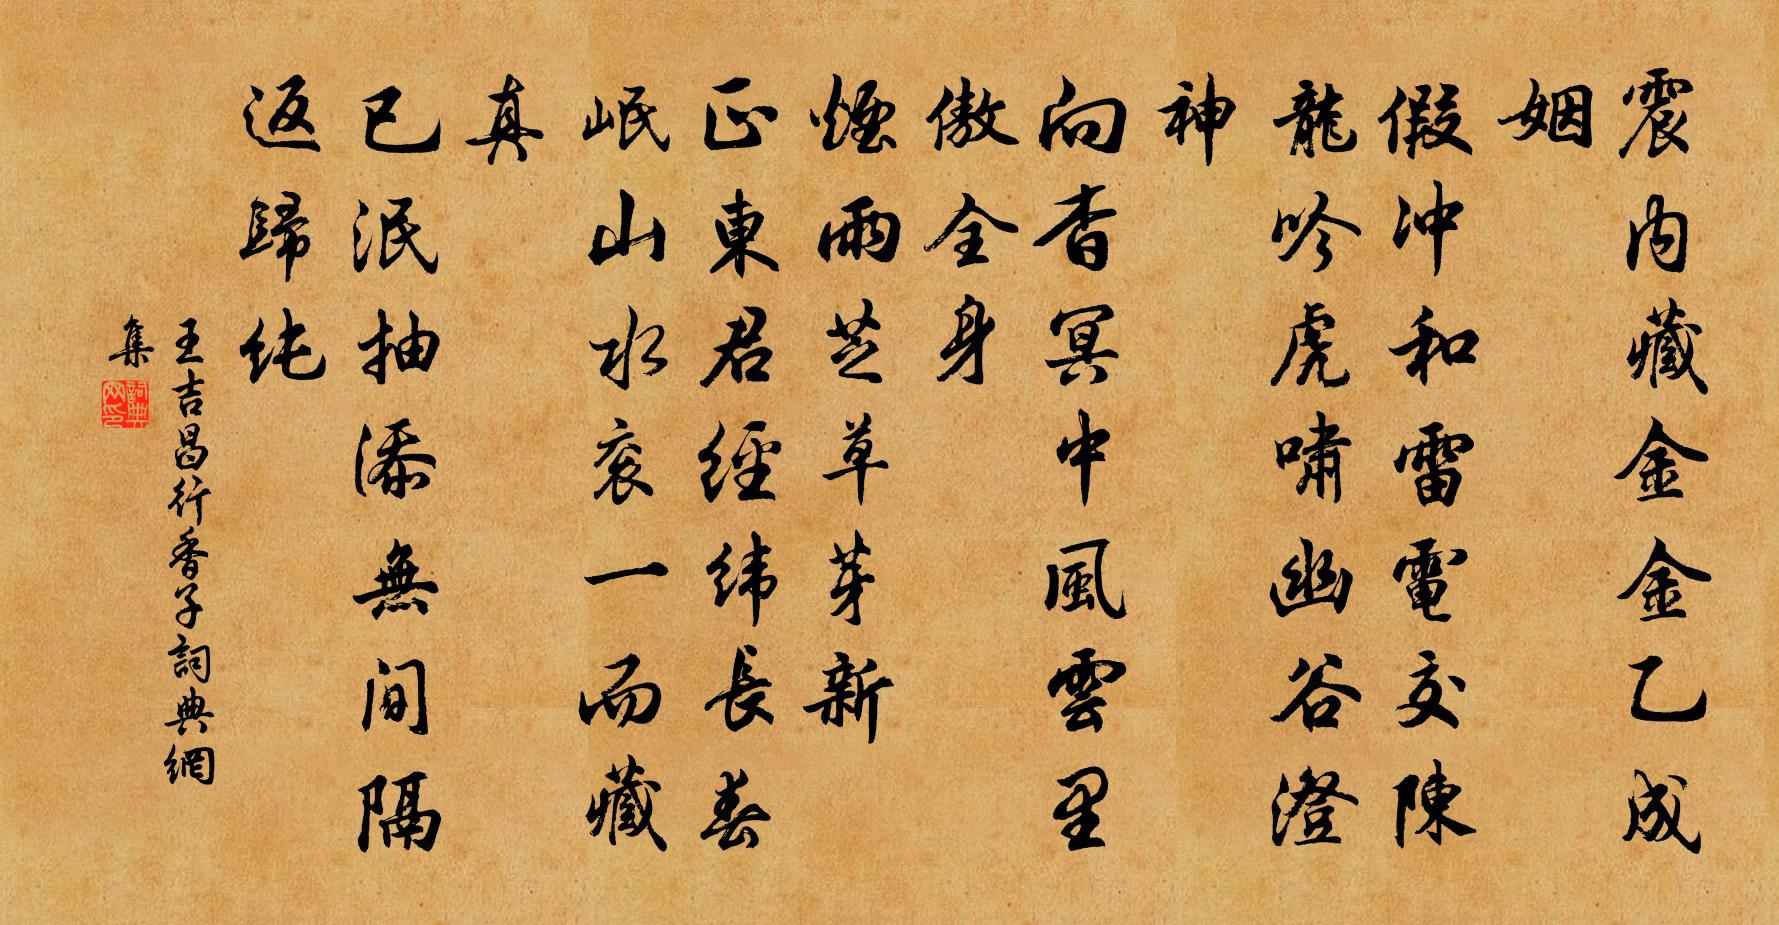 震内藏金金乙成
姻
假冲和雷電交陳
龍吟虎嘯幽谷澄
神
向杳冥中風雲里
傲全身
煙雨芝草芽新
正東君經緯長春
岷山水衮一而藏
真
已泯抽添無间隔
返歸纯
王吉昌行香子詞典網
集
詞典
网印